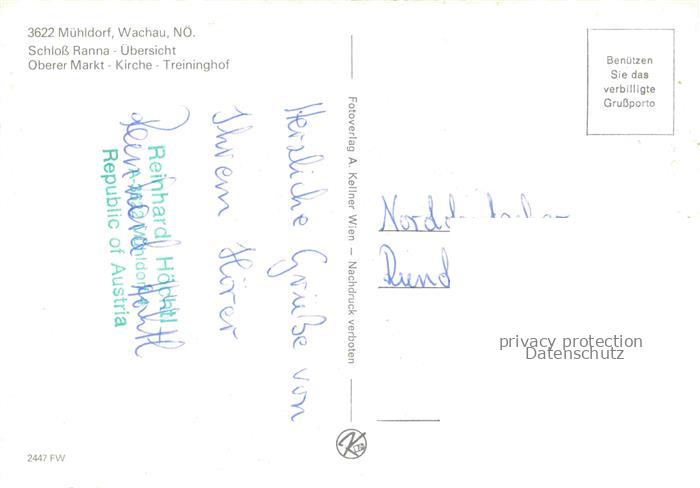 3622 Mühldorf, Wachau, NÖ.
Schloß Ranna - Übersicht
Oberer Markt - Kirche - Treininghof
Benützen
Sie das
verbilligte
Grußporto
Herzliche Grüße von
Ihrem Hörer
Reinhard Höchtl
Reinhard Höchtl
Republic of Austria
Fotoverlag A. Kellner Wien — Nachdruck verboten
Rund
privacy protection
Datenschutz
2447 FW